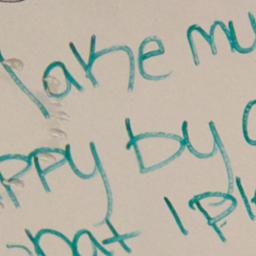 Make mu
ppy by
hat I pl